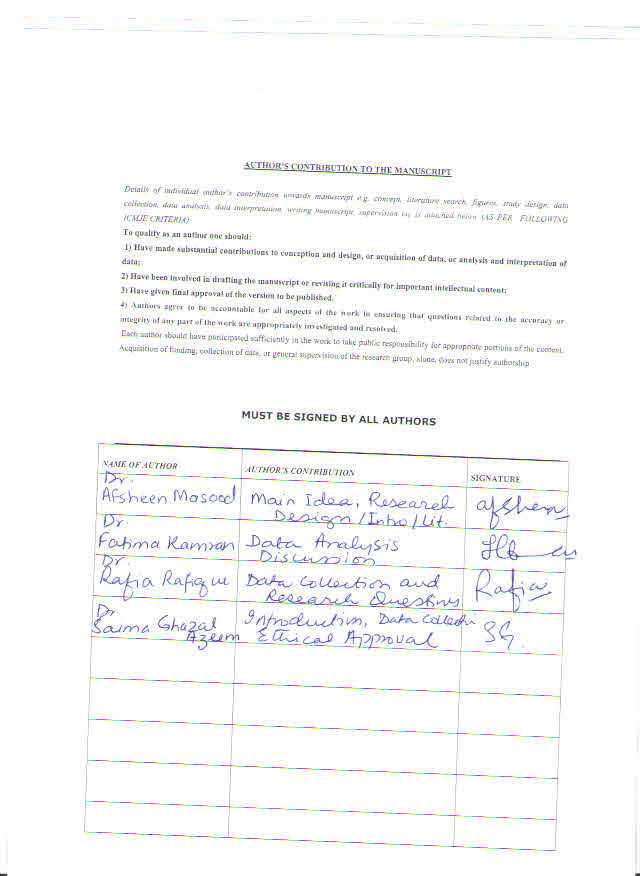 AUTHOR'S CONTRIBUTION TO THE MANUSCRIPT
Details of individual author's contribution towards manuscript e.g. concept, literature search, figures, study design, data
collection, data analysis, data interpretation, writing manuscript, supervision etc is attached below (AS PER FOLLOWING
ICMJE CRITERIA)
To qualify as an author one should:
1) Have made substantial contributions to conception and design, or acquisition of data, or analysis and interpretation of
data;
2) Have been involved in drafting the manuscript or revising it critically for important intellectual content;
3) Have given final approval of the version to be published.
4) Authors agree to be accountable for all aspects of the work in ensuring that questions related to the accuracy or
integrity of any part of the work are appropriately investigated and resolved.
Each author should have participated sufficiently in the work to take public responsibility for appropriate portions of the content.
Acquisition of funding, collection of data, or general supervision of the research group, alone, does not justify authorship
MUST BE SIGNED BY ALL AUTHORS
NAME OF AUTHOR AUTHOR'S CONTRIBUTION SIGNATURE
Dr.
Afsheen Masood Main Idea, Research afsheen
Design/Intro/Lit.
Dr.
Fatima Kamran Data Analysis
Discussion
Dr.
Rafia Rafique Data Collection and Rafia
Research Questions
Dr
Saima Ghazal Introduction, Data Collecti SG.
Azeem Ethical Approval